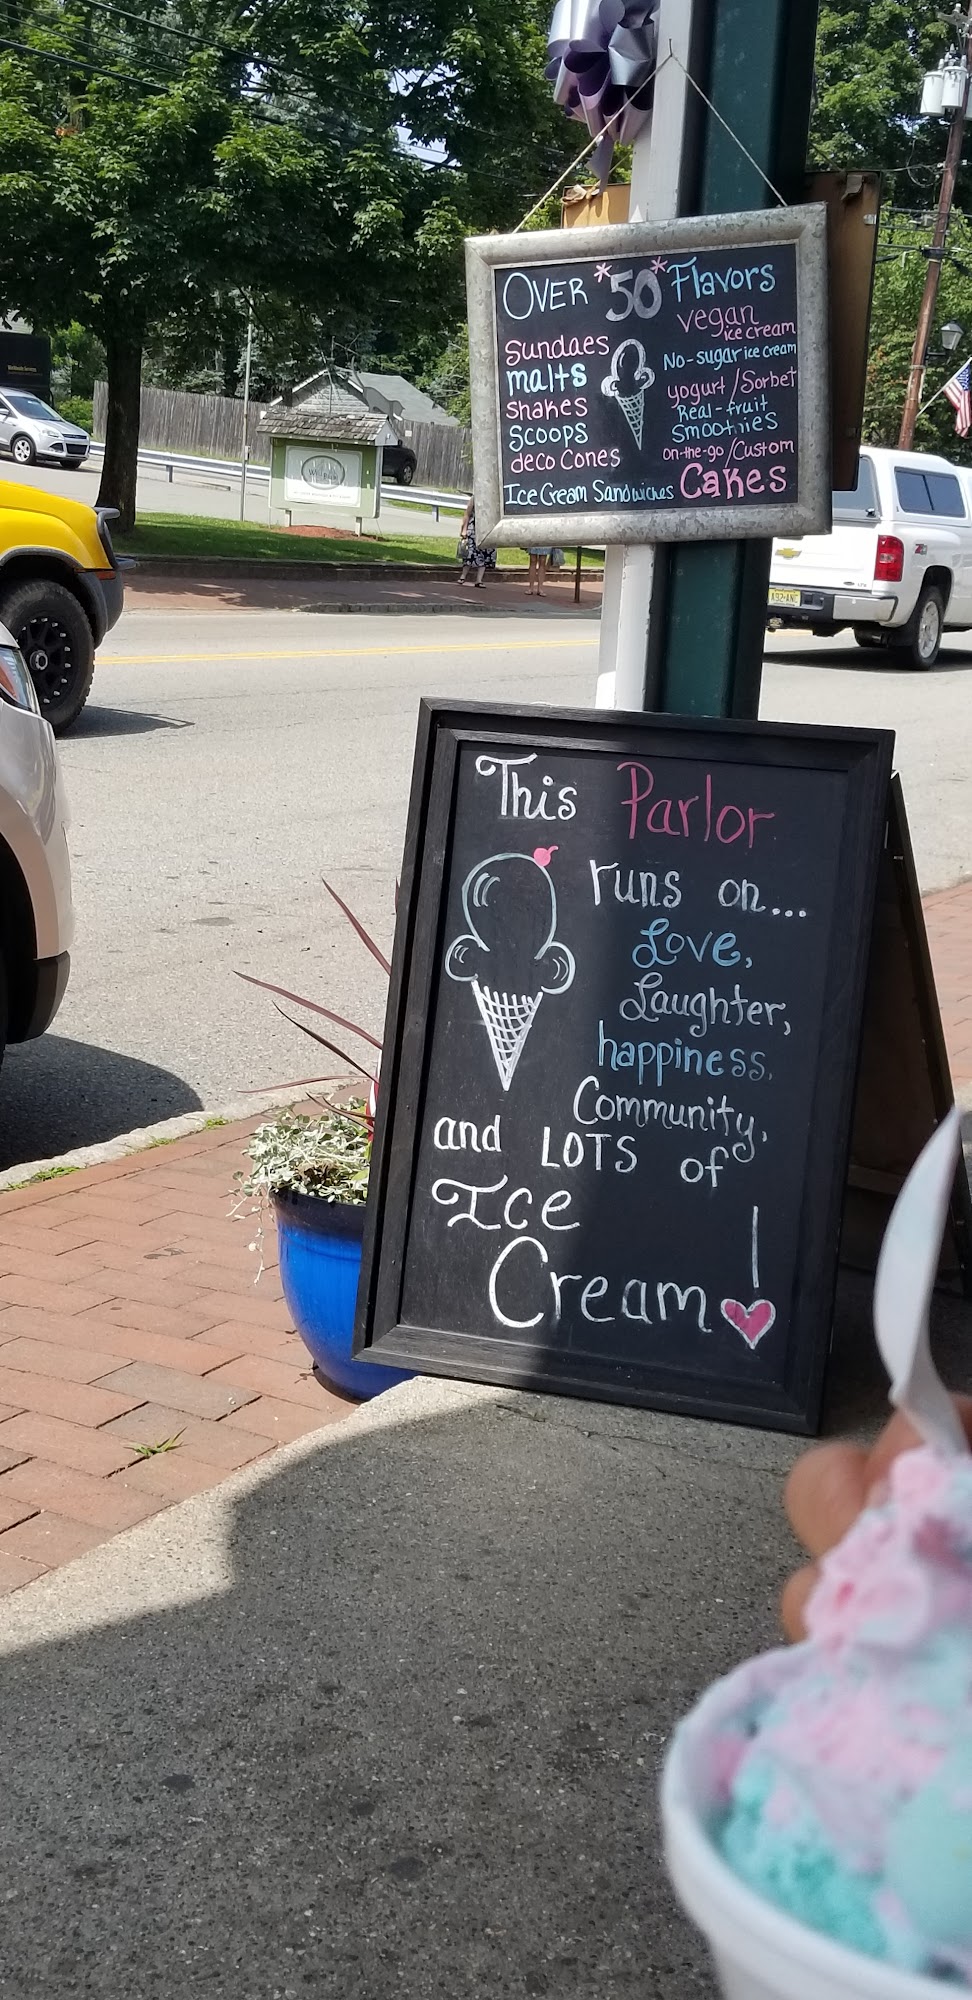 Over *50* Flavors
Sundaes
malts
shakes
Scoops
deco Cones
Ice Cream Sandwiches
vegan
ice cream
No-sugar ice cream
yogurt/Sorbet
Real-fruit
Smoothies
on-the-go/Custom
Cakes
This Parlor
runs on...
Love,
Laughter,
happiness,
Community,
and LOTS of
Ice
Cream!